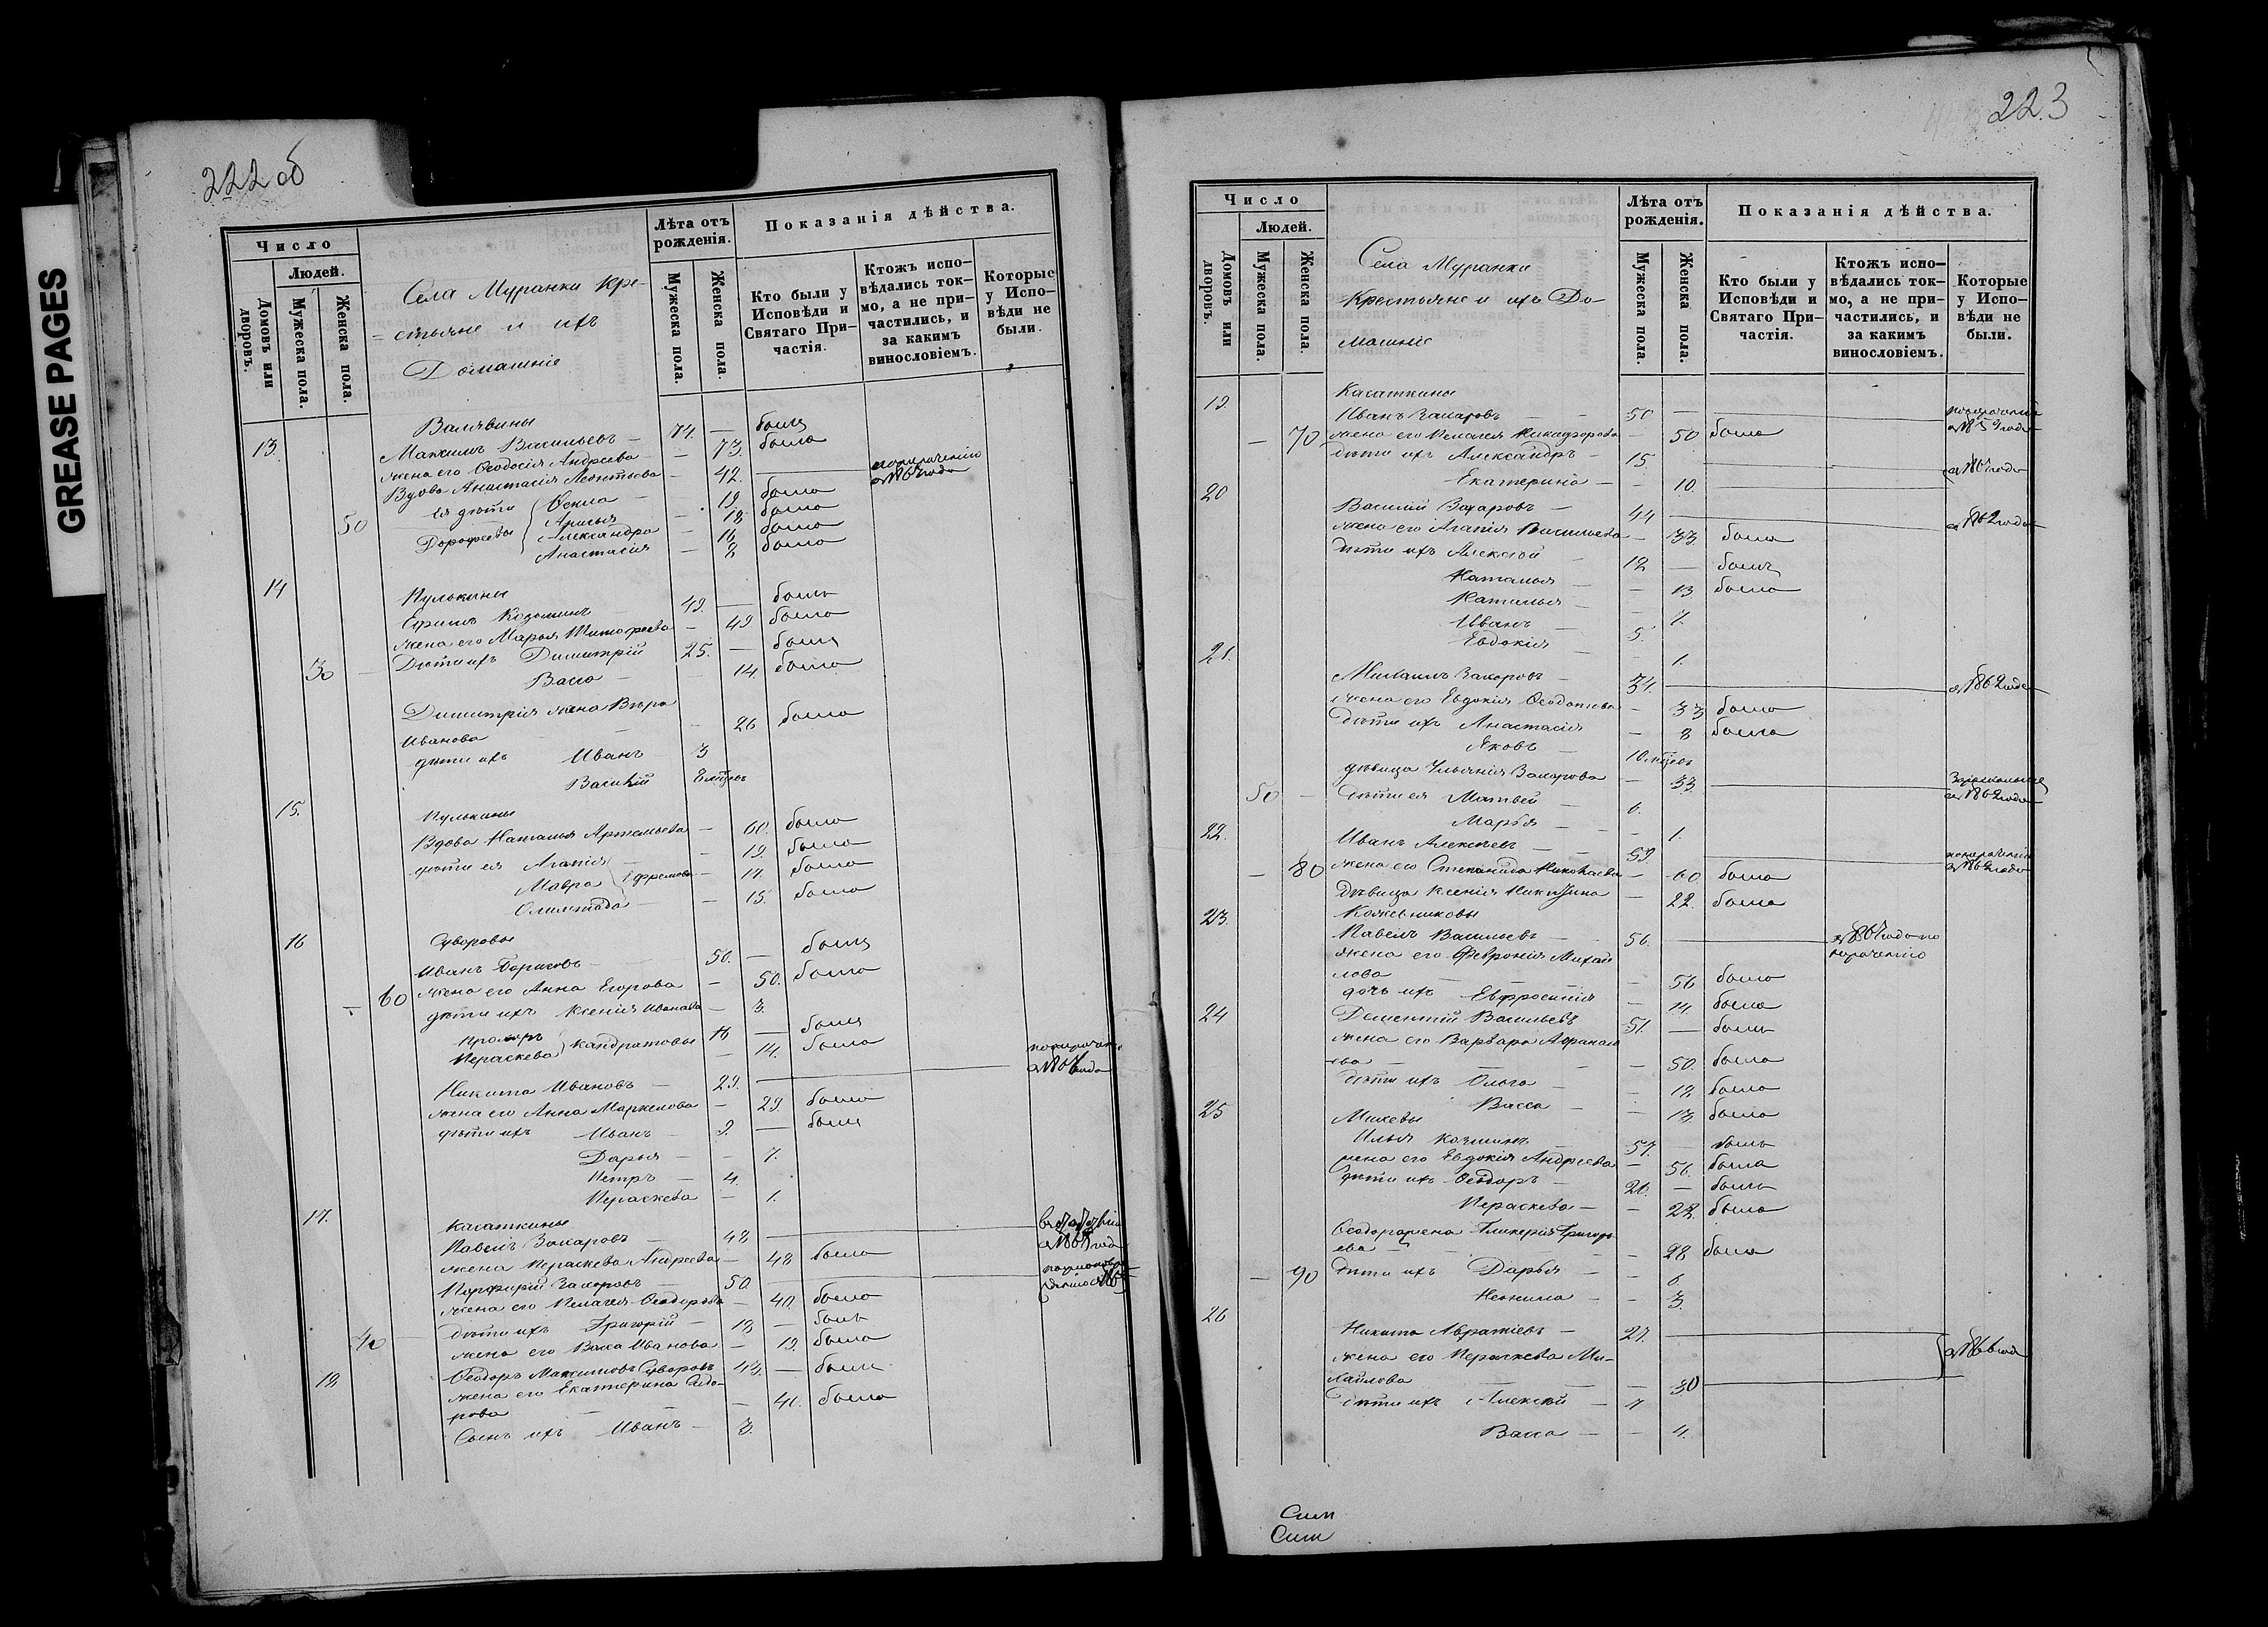 GREASE PAGES
222 об
Число
Людей.
Домовъ или дворовъ.
Мужеска пола.
Женска пола.
Села Муранки Кре-
= стьяне и ихъ
Домашніе
Лѣта отъ рожденія.
Мужеска пола.
Женска пола.
Показанія дѣйства.
Кто были у Исповѣди и Святаго При-частія.
Ктожъ испо-вѣдались ток-мо, а не при-частились, и за какимъ винословіемъ.
Которые у Испо-вѣди не были.
13. Максимъ Васильевъ — 74. — былъ
жена его Ѳеодосія Андреева — 73. была
Вдова Анастасія Леонтьева — 42.
ея дѣти Ѳекла — 19. была
50 Дорофеевы
Александра — 16 была
Анастасія — 8 была
14 Пулькины
Козминъ 49. — былъ
жена его Марья Тимофеева — 49 была
Дѣти ихъ Димитрій 25. — былъ
30 — Васса — 14. была
Димитрія жена Вѣра
Иванова — 26 была
дѣти ихъ Иванъ — 3
Василій 8 мѣсяц
15. Пулькины
Вдова Наталья Артемьева — 60. была
дѣти ея Агапія — 19. была
Мавра Ефремовы — 17. была
Олимпіада — 15. была
16 Суворовы
Иванъ Борисовъ 50. — былъ
— 60 жена его Анна Егорова — 50. была
дѣти ихъ Ксенія Иванова — 3.
Прохоръ 18 — былъ
Параскева Кандратовы — 14. была
Никита Ивановъ — 29.
жена его Анна Маркелова — 29. была
дѣти ихъ Иванъ — 9. — былъ
Дарья — 7.
Петръ — 4.
Параскева — 1.
17. Касаткины
Павелъ Захаровъ — 48
жена Параскева Андреева — 48 была
Порфирій Захаровъ — 50.
жена его Пелагея Ѳеодорова — 40. была
дѣти ихъ Григорій — 18 — былъ
40 — жена его Васса Иванова — 19. была
18 Ѳеодоръ Максимовъ Суворовъ 43. — былъ
жена его Екатерина Ѳедо-
рова — 40. была
Сынъ ихъ Иванъ — 3.
223
Число
Людей.
Домовъ или дворовъ.
Мужеска пола.
Женска пола.
Села Муранки
Крестьяне и ихъ До-
машніе
Лѣта отъ рожденія.
Мужеска пола.
Женска пола.
Показанія дѣйства.
Кто были у Исповѣди и Святаго При-частія.
Ктожъ испо-вѣдались ток-мо, а не при-частились, и за какимъ винословіемъ.
Которые у Испо-вѣди не были.
19. Касаткины
Иванъ Захаровъ — 50 —
— 70 жена его Пелагея Никифорова — 50 была
дѣти ихъ Александръ — 15.
Екатерина — 10.
20 Василій Захаровъ — 44 с 1862 года
жена его Агапія Васильева — 33. была
дѣти ихъ Алексѣй 12 — былъ
Наталья — 13. была
Наталья — 7.
Иванъ 5.
Евдокія — 1.
21. Михаилъ Захаровъ — 34. с 1862 года
жена его Евдокія Ѳеодотова — 33 была
дѣти ихъ Анастасія — 8 была
Яковъ — 10 мѣсяц
дѣвица Захарова — 33
50 — Дѣти ея Матвей — 6. с 1862 года
Марья — 1.
22. Иванъ Алексѣевъ — 59.
— 80 жена его Степанида Николаева — 60. была
Дѣвица Ксенія — 22. была
23. Кожевниковы
Павелъ Васильевъ — 56.
жена его Февронія Михай
лова — 56 была
дочь ихъ Евфросинія — 14. была
24 Дементій Васильевъ 51. — былъ
жена его Варвара Афанась
ева — 50. была
дѣти ихъ Ольга — 19. была
Васса — 13. была
25 Михеевы
Илья Козминъ 57. — былъ
жена его Евдокія Андреева — 56. была
дѣти ихъ Ѳеодоръ — 26. — былъ
Параскева — 22. была
Ѳеодора жена Гликерія Григорь
ева — 28 была
— 90 дѣти ихъ Дарья — 6.
Неонила — 3.
26 Никита — 27.
жена его Параскева Ми-
хайлова — 30
Дѣти ихъ Алексѣй — 7
Васса — 4.